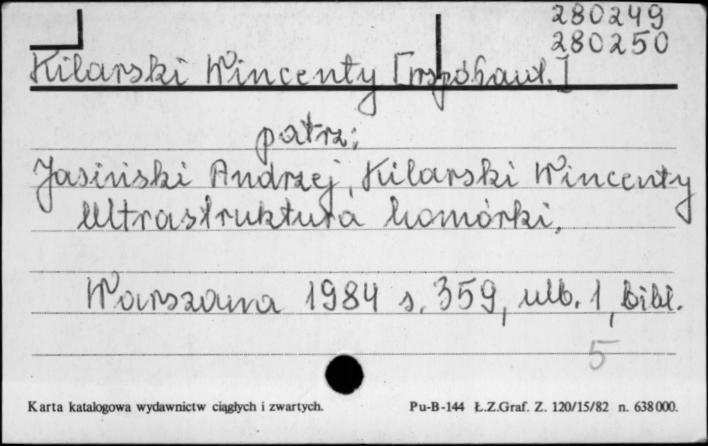 280249
280250
Kilarski Wincenty [współaut.]
patrz:
Jasiński Andrzej, Kilarski Wincenty
Ultrastruktura komórki.
Warszawa 1984 s. 359, ulb. 1, bibl.
5
Karta katalogowa wydawnictw ciągłych i zwartych. Pu-B-144 Ł.Z.Graf. Z. 120/15/82 n. 638000.